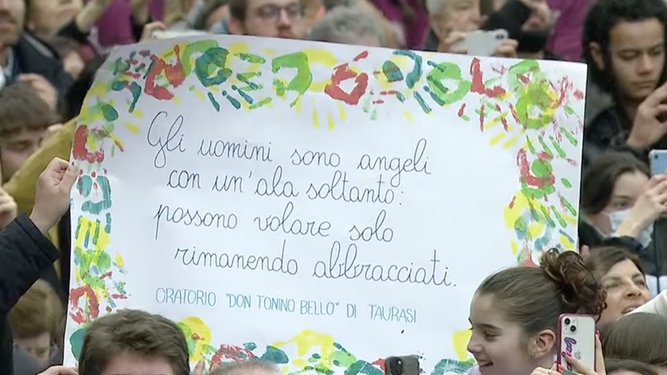 Gli uomini sono angeli
con un'ala soltanto:
possono volare solo
rimanendo abbracciati.
ORATORIO "DON TONINO BELLO" DI TAURASI